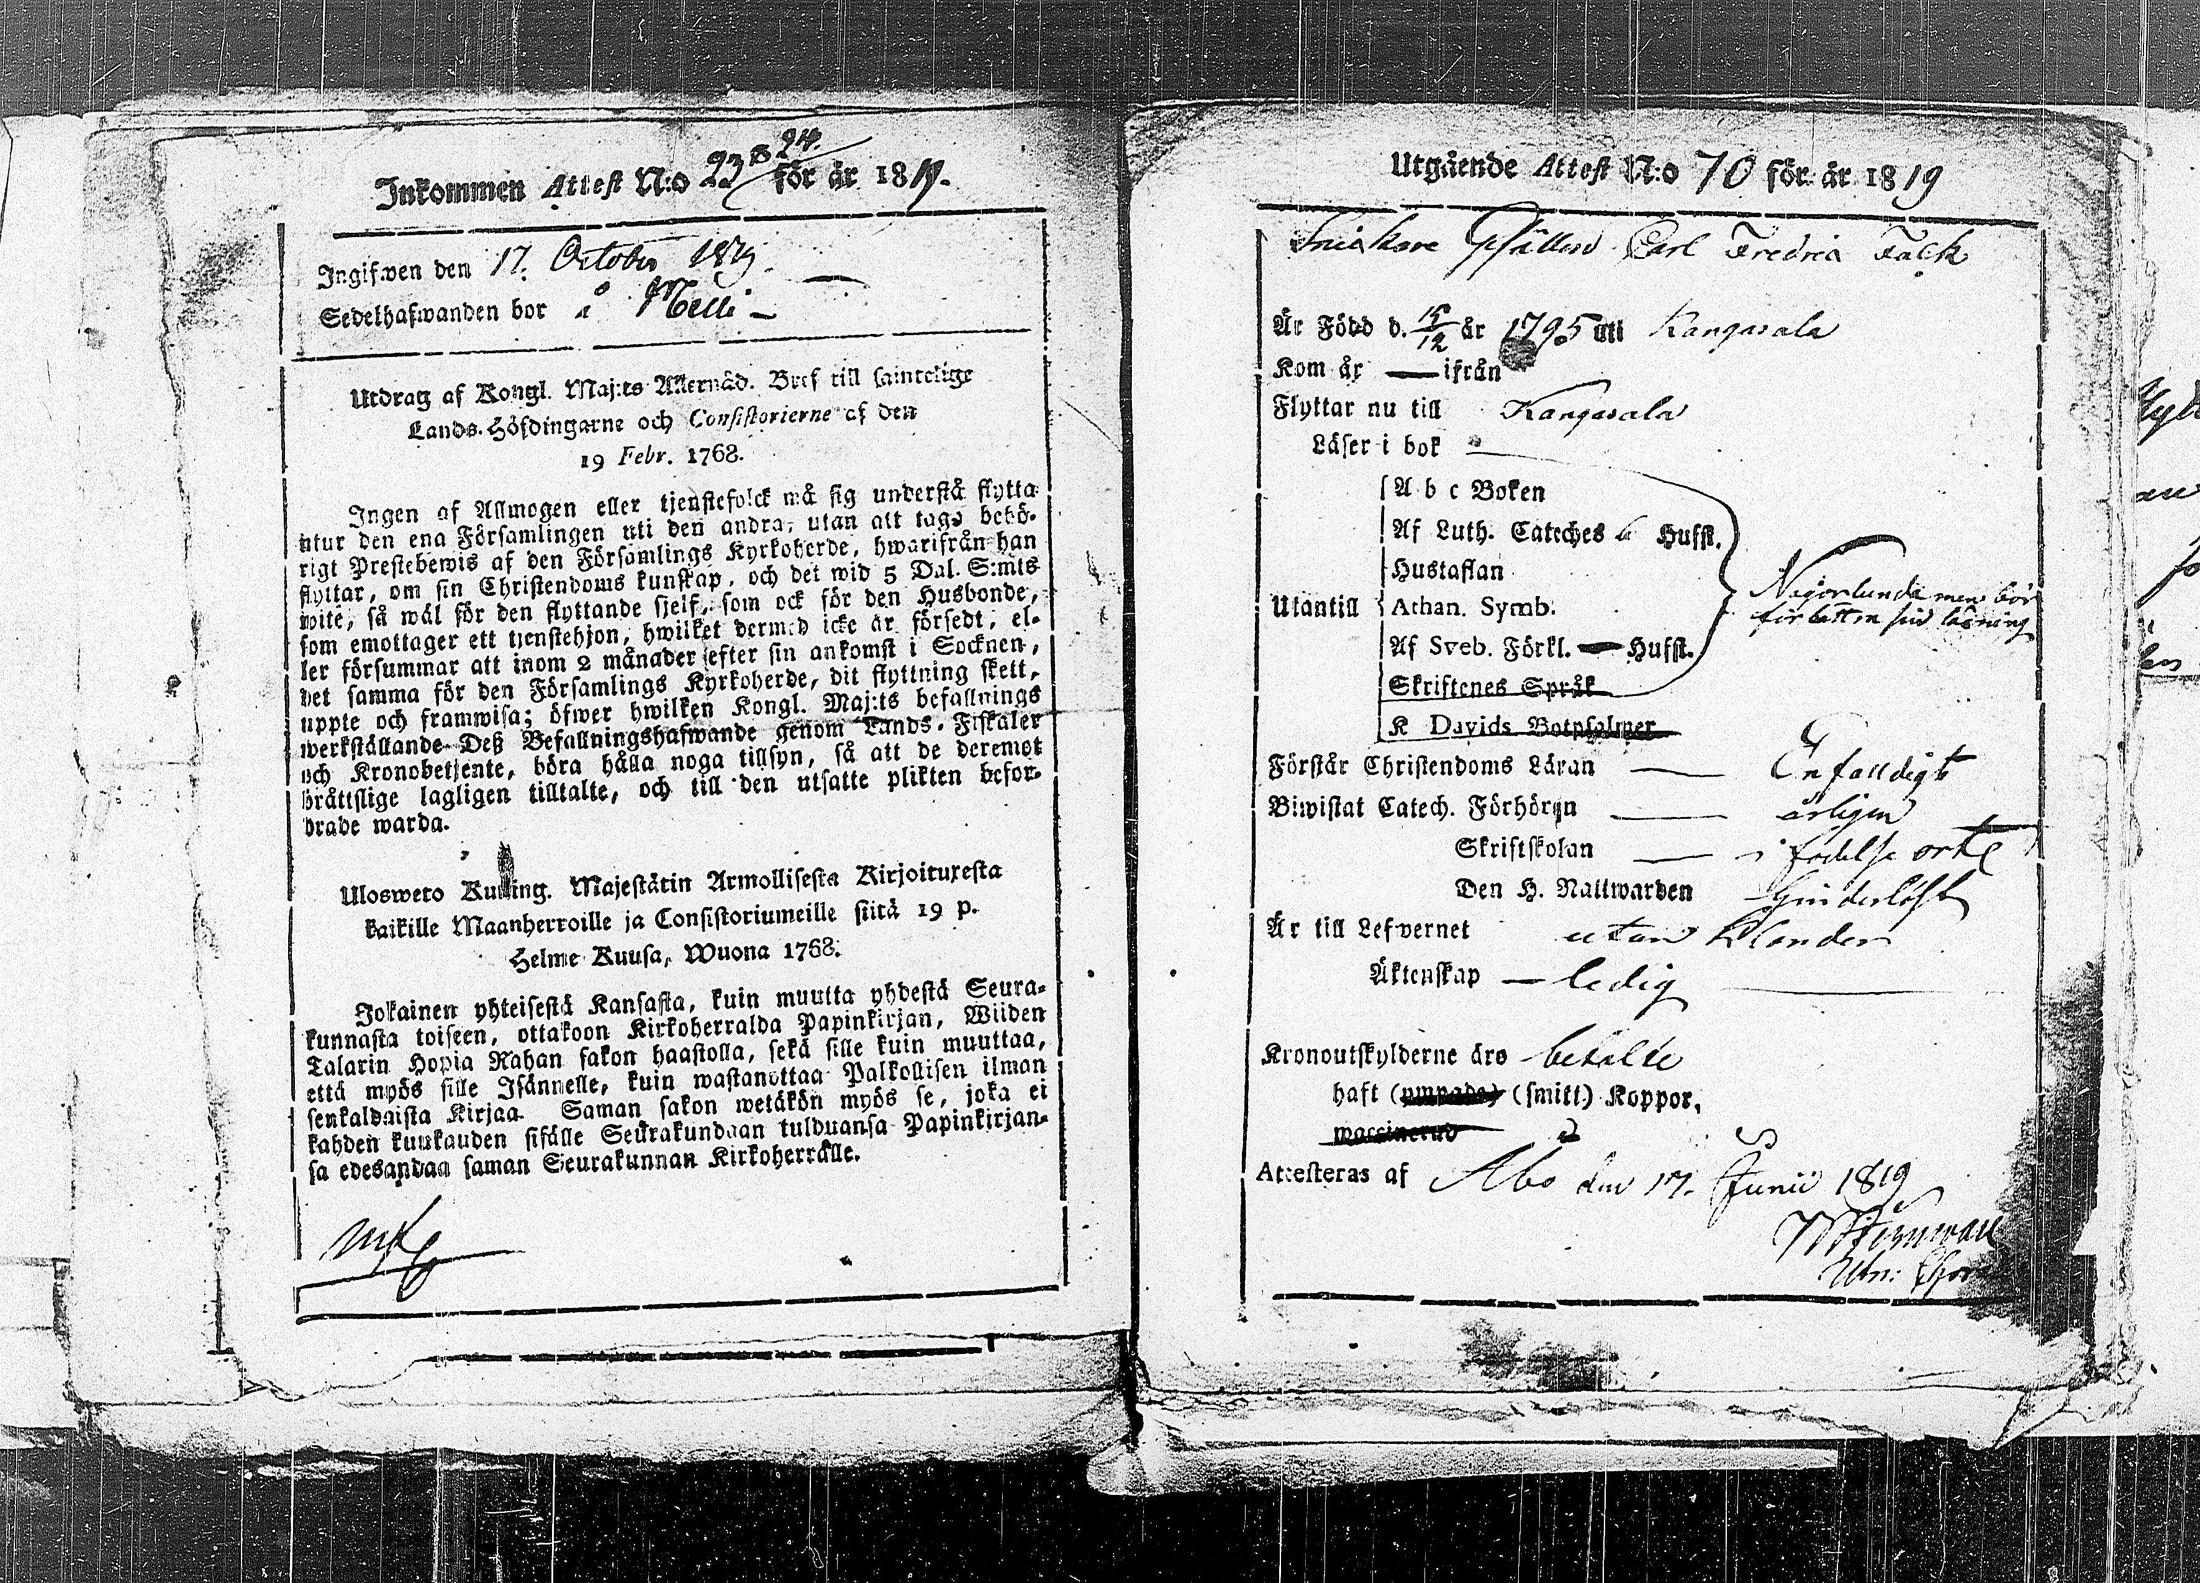 Inkommen Attest N:o 23 B 24. för år 1819.
Ingifwen den 17. October 1819.
Sedelhafwanden bor å Melli
Utdrag af Kongl. Maj:ts Allernåd. Bref till samtelige
Lands-Höfdingarne och Consistorierne af den
19 Febr. 1768.
Ingen af Allmogen eller tjenstefolck må sig understå flytta
utur den ena Församlingen uti den andra, utan att taga behö-
rigt Prestebewis af den Församlings Kyrkoherde, hwarifrån han
flyttar, om sin Christendoms kunskap, och det wid 5 Dal. S:mts
wite, så wäl för den flyttande sjelf, som ock för den Husbonde,
som emottager ett tjenstehjon, hwilket dermed icke är försedt, el-
ler försummar att inom 2 månader efter sin ankomst i Socknen,
det samma för den Församlings Kyrkoherde, dit flyttning skett,
uppte och framwisa; öfwer hwilken Kongl. Maj:ts befallnings
werkställande Deß Befallningshafwande genom Lands-Fiskaler
och Kronobetjente, böra hålla noga tillsyn, så att de deremot
bråttslige lagligen tilltalte, och till den utsatte plikten befor-
drade warda.
Ulosweto Kuning. Majestätin Armollisesta Kirjoituxesta
kaikille Maanherroille ja Consistoriumeille siitä 19 p.
Helme Kuusa, Wuona 1768.
Jokainen yhteisestä Kansasta, kuin muutta yhdestä Seura-
kunnasta toiseen, ottakoon Kirkoherralda Papinkirjan, Wiiden
Talarin Hopia Rahan sakon haastolla, sekä sille kuin muuttaa,
että myös sille Isännelle, kuin wastanottaa Palkollisen ilman
senkaldaista Kirjaa. Saman sakon wetäkön myös se, joka ei
kahden kuukauden sisälle Seurakundaan tulduansa Papinkirjan-
sa edesandaa saman Seurakunnan Kirkoherralle.
Utgående Attest N:o 70 för år 1819
Snickare Gesällen Carl Fredric Falck
Är Född d. 15/12 år 1795 uti Kangasala
Kom år — ifrån
Flyttar nu till Kangasala
Läser i bok
A b c Boken
Af Luth. Cateches 6 Hufst.
Hustaflan
Utantill Athan. Symb.
Någorlunda men bör
förbättra sin läsning
Af Sveb. Förkl. — Hufst.
Skriftenes Språk
K Davids Botpsalmer
Förstår Christendoms Läran — Enfaldigt
Biwistat Catech. Förhören — årligen
Skriftskolan — i födelse orten
Den H. Nattwarden
Är till Lefvernet utan klander
Äktenskap — ledig
Kronoutskylderne äro betalte
haft (ympade) (smitt.) Koppor,
waccinerud
Attesteras af Åbo den 17. Junii 1819